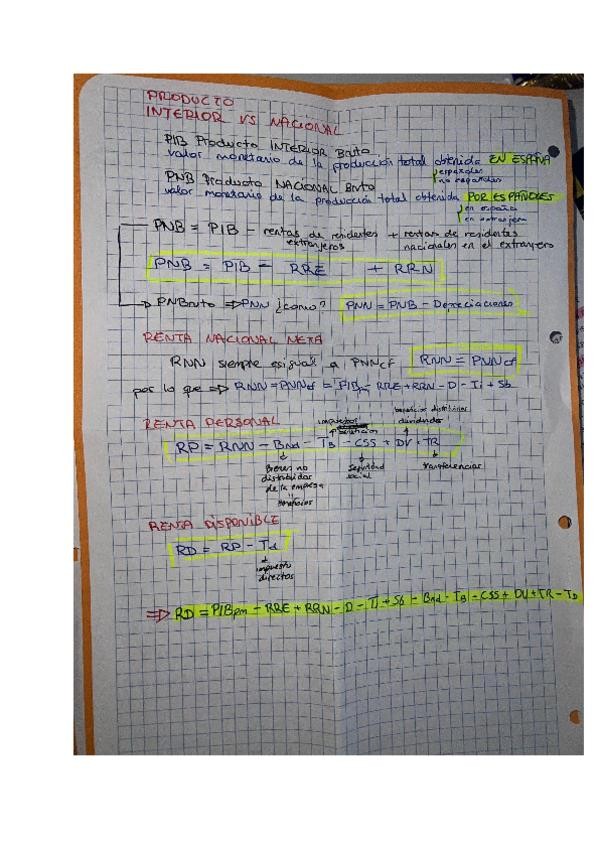 PRODUCTO
INTERIOR VS NACIONAL
PIB Producto INTERIOR Bruto
valor monetario de la producción total obtenida EN ESPAÑA
españoles
no españoles
PNB Producto NACIONAL Bruto
valor monetario de la producción total obtenida POR ESPAÑOLES
en españa
en extranjero
PNB = PIB - rentas de residentes + rentas de residentes
extranjeros nacionales en el extranjero
PNB = PIB - RRE + RRN
PNBruto ⇒ PNN ¿como? PNN = PNB - Depreciaciones
RENTA NACIONAL NETA
RNN siempre es igual a PNNcf RNN = PNNcf
por lo que ⇒ RNN = PNNcf = PIBpm - RRE + RRN - D - Ti + Sb
RENTA PERSONAL
impuestos beneficios distribuidos
beneficios dividendos
RP = RNN - Bnd - TB - CSS + DV + TR
Bienes no Seguridad transferencias
distribuidos social
de la empresa
beneficios
RENTA DISPONIBLE
RD = RP - Td
impuesto
directos
⇒ RD = PIBpm - RRE + RRN - D - Ti + Sb - Bnd - TB - CSS + DV + TR - TD